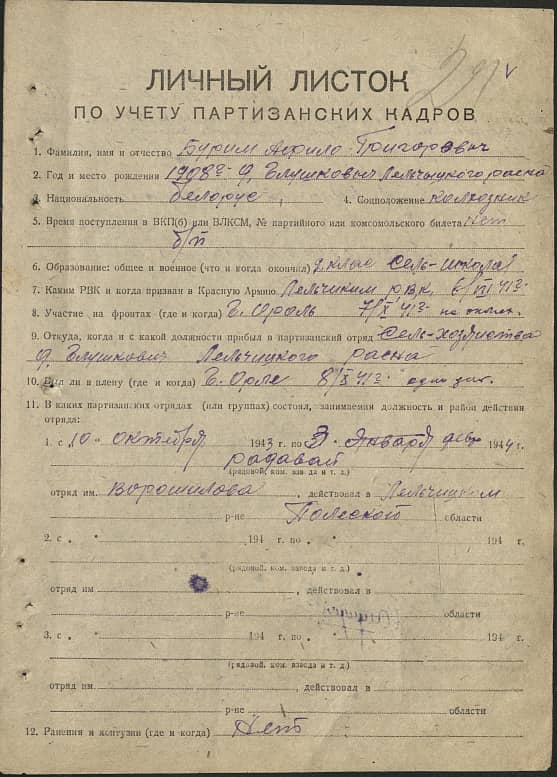 ЛИЧНЫЙ ЛИСТОК
ПО УЧЕТУ ПАРТИЗАНСКИХ КАДРОВ
1. Фамилия, имя и отчество Бурим Григоревич
2. Год и место рождения 1908 г. д. Глушкович Лельчицкого
3. Национальность белорус, 4. Соцположение колхозник
5. Время поступления в ВКП(б) или ВЛКСМ, № партийного или комсомольского билета нет
б/п
6. Образование: общее и военное (что и когда окончил) Сель-школа
7. Каким РВК и когда призван в Красную Армию Лельчиким рвк, 6/VII 41 г.
8. Участие на фронтах (где и когда) 7/X 41 г.
9. Откуда, когда и с какой должности прибыл в партизанский отряд Сель-хозяства
д. Глушкович Лельчицкого
10. Был ли в плену (где и когда) Г. Орле 8/X 41 г. один
11. В каких партизанских отрядах (или группах) состоял, занимаемая должность и район действия
отряда:
1. с 10 - октября 1943 г. по 3 - января 1944 г.
радавай
(рядовой, ком. взвода и т. д.)
отряд им. Ворошилова, действовал в Лельчицком
р-не Полеской области
2. с 194 г. по 194 г.
(рядовой, ком. взвода и т. д.)
отряд им , действовал в
р-не области
3. с 194 г. по 194 г.
(рядовой, ком. взвода и т. д.)
отряд им , действовал в
р-не области
12. Ранения и контузии (где и когда) Нет